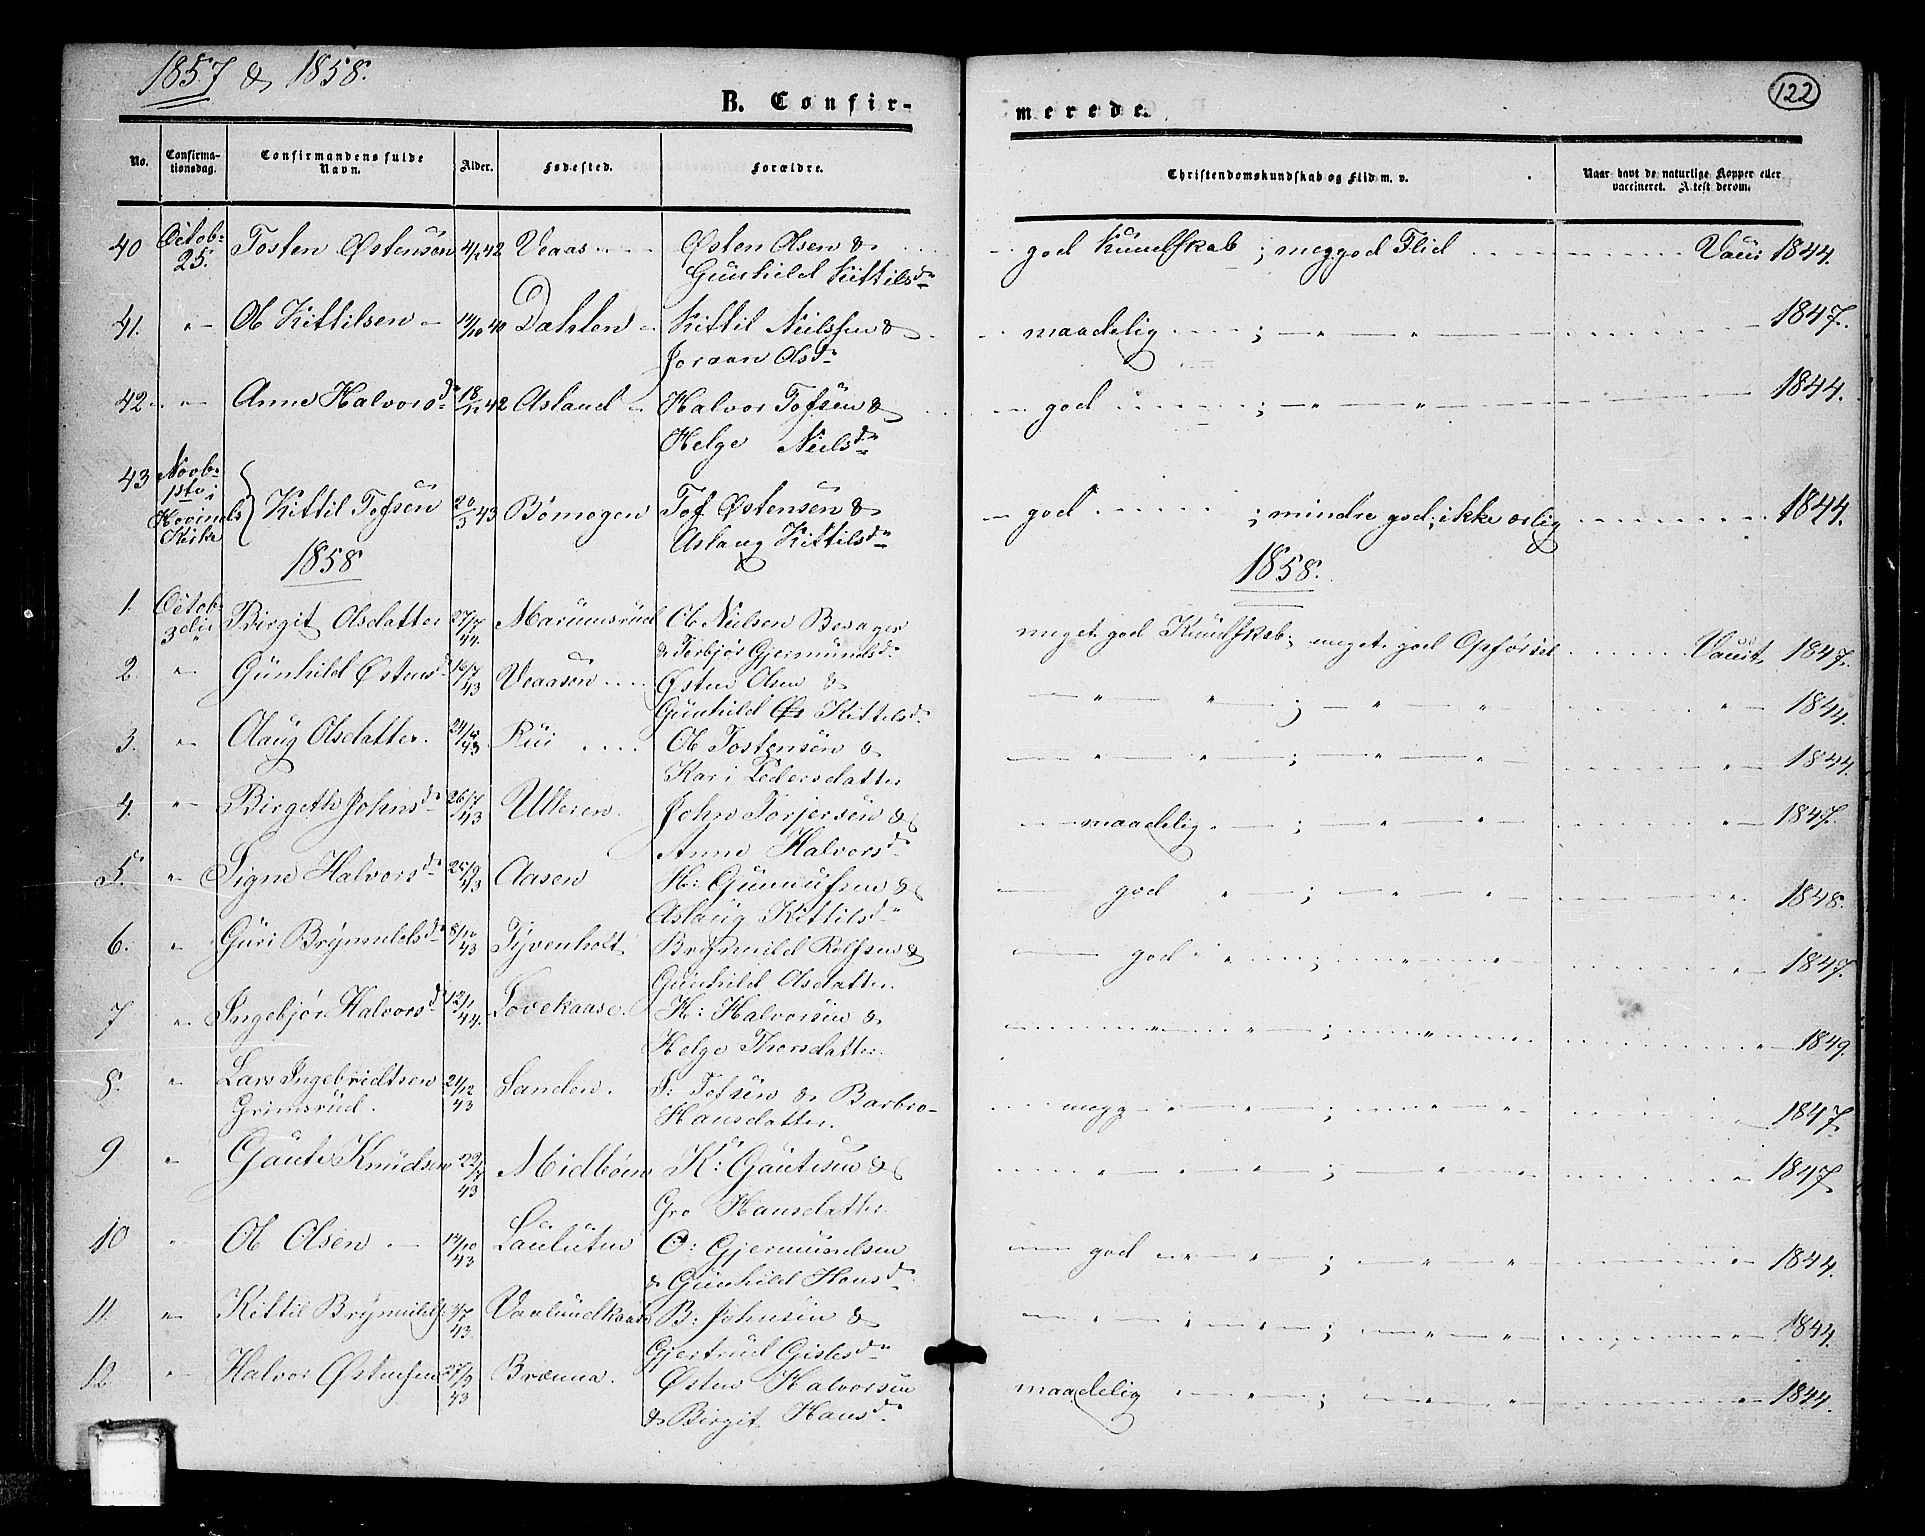 1857 & 1858.
122
B. Confir-
merede.
No.
Confirma-
tionsdag.
Confirmandens fulde
Navn.
Alder.
Fødested.
Forældre.
Christendomskundskab og Flid m. v.
Naar havt de naturlige Kopper eller
vaccineret. Attest derom.
40 Octob: 25. Tosten Østensen 42 Veaas Østen Olsen & god Kundskab ; meg god Flid Vacc 1844.
Gunhild Kittilsd.
41. " Ole Kittilsen 14/10 40 Dahlen Kittil Neilssen & maadelig ; " " 1847.
Joraan Olsd.
42 " Anne Halvorsd. 18/11 42 Asland Halvor Tofsen & god ; " " 1844.
Helge Nielsd.
43 Novb. 1ste i Hovinds Kirke Kittil Tofsen 20/3 43 Bømogen Tof Østensen & god ; mindre god; ikke ærlig 1844.
Aslaug Kittilsd.
1858 1858.
1. Octob. 3die Birgit Olsdatter 27/7 44. Marumsrud Ole Nielsen Besager meget god Kundskab; meget god Opførsel Vaccit 1847.
& Torbjør Gjermundsd.
2. " Gunhild Østensd. 16/7 43 Veaasen Østen Olsen & " " ; " " " 1844.
Gunhild Kittelsd.
3. " Olaug Olsdatter. 24/10 43 Rui Ole Tostensen & " " ; " " " 1844.
Kari Pedersdatter
4. " Birgethe Johnsd. 26/7 43 Ulleren John Torjersen & maadelig ; " " " 1847.
Anne Halvorsd.
5. " Signe Halvorsd. 25/9 43 Aasen H: Gunnufsen & god " ; " " " 1848.
Aslaug Kittilsd.
6. " Guri Brynnildsd. 8/10 43 Tyvenholt Brynnild Rolfsen & god " ; " " " 1847.
Gunhild Olsdatter.
7 " Ingebjør Halvorsd. 12/1 44. Lovekaase. H: Halvorsen & " " ; " " " 1849.
Helge Thorsdatter.
8. " Lars Ingebridtsen 21/12 43 Sanden. I: Tofsen & Barbro meg g " " ; " " 1847.
Grimsrud. Hansdatter.
9 " Gaute Knudsen 22/7 43 Midbøen K: Gautesen & " " ; " " " 1847.
Gro Hansdatter
10 " Ole Olsen 14/10 43 Lauluten O: Gjermundsen god " " ; " " " 1844.
& Gunhild Hansd.
11. " Kittil Brynnilds. 43. Vaalundkaas B: Johnsen & " " ; " " " 1844.
Gjertrud Gislesd.
12 " Halvor Østensen 27/9 43 Brænna. Østen Halvorsen maadelig " " ; " " 1844.
& Birgit Hansd.